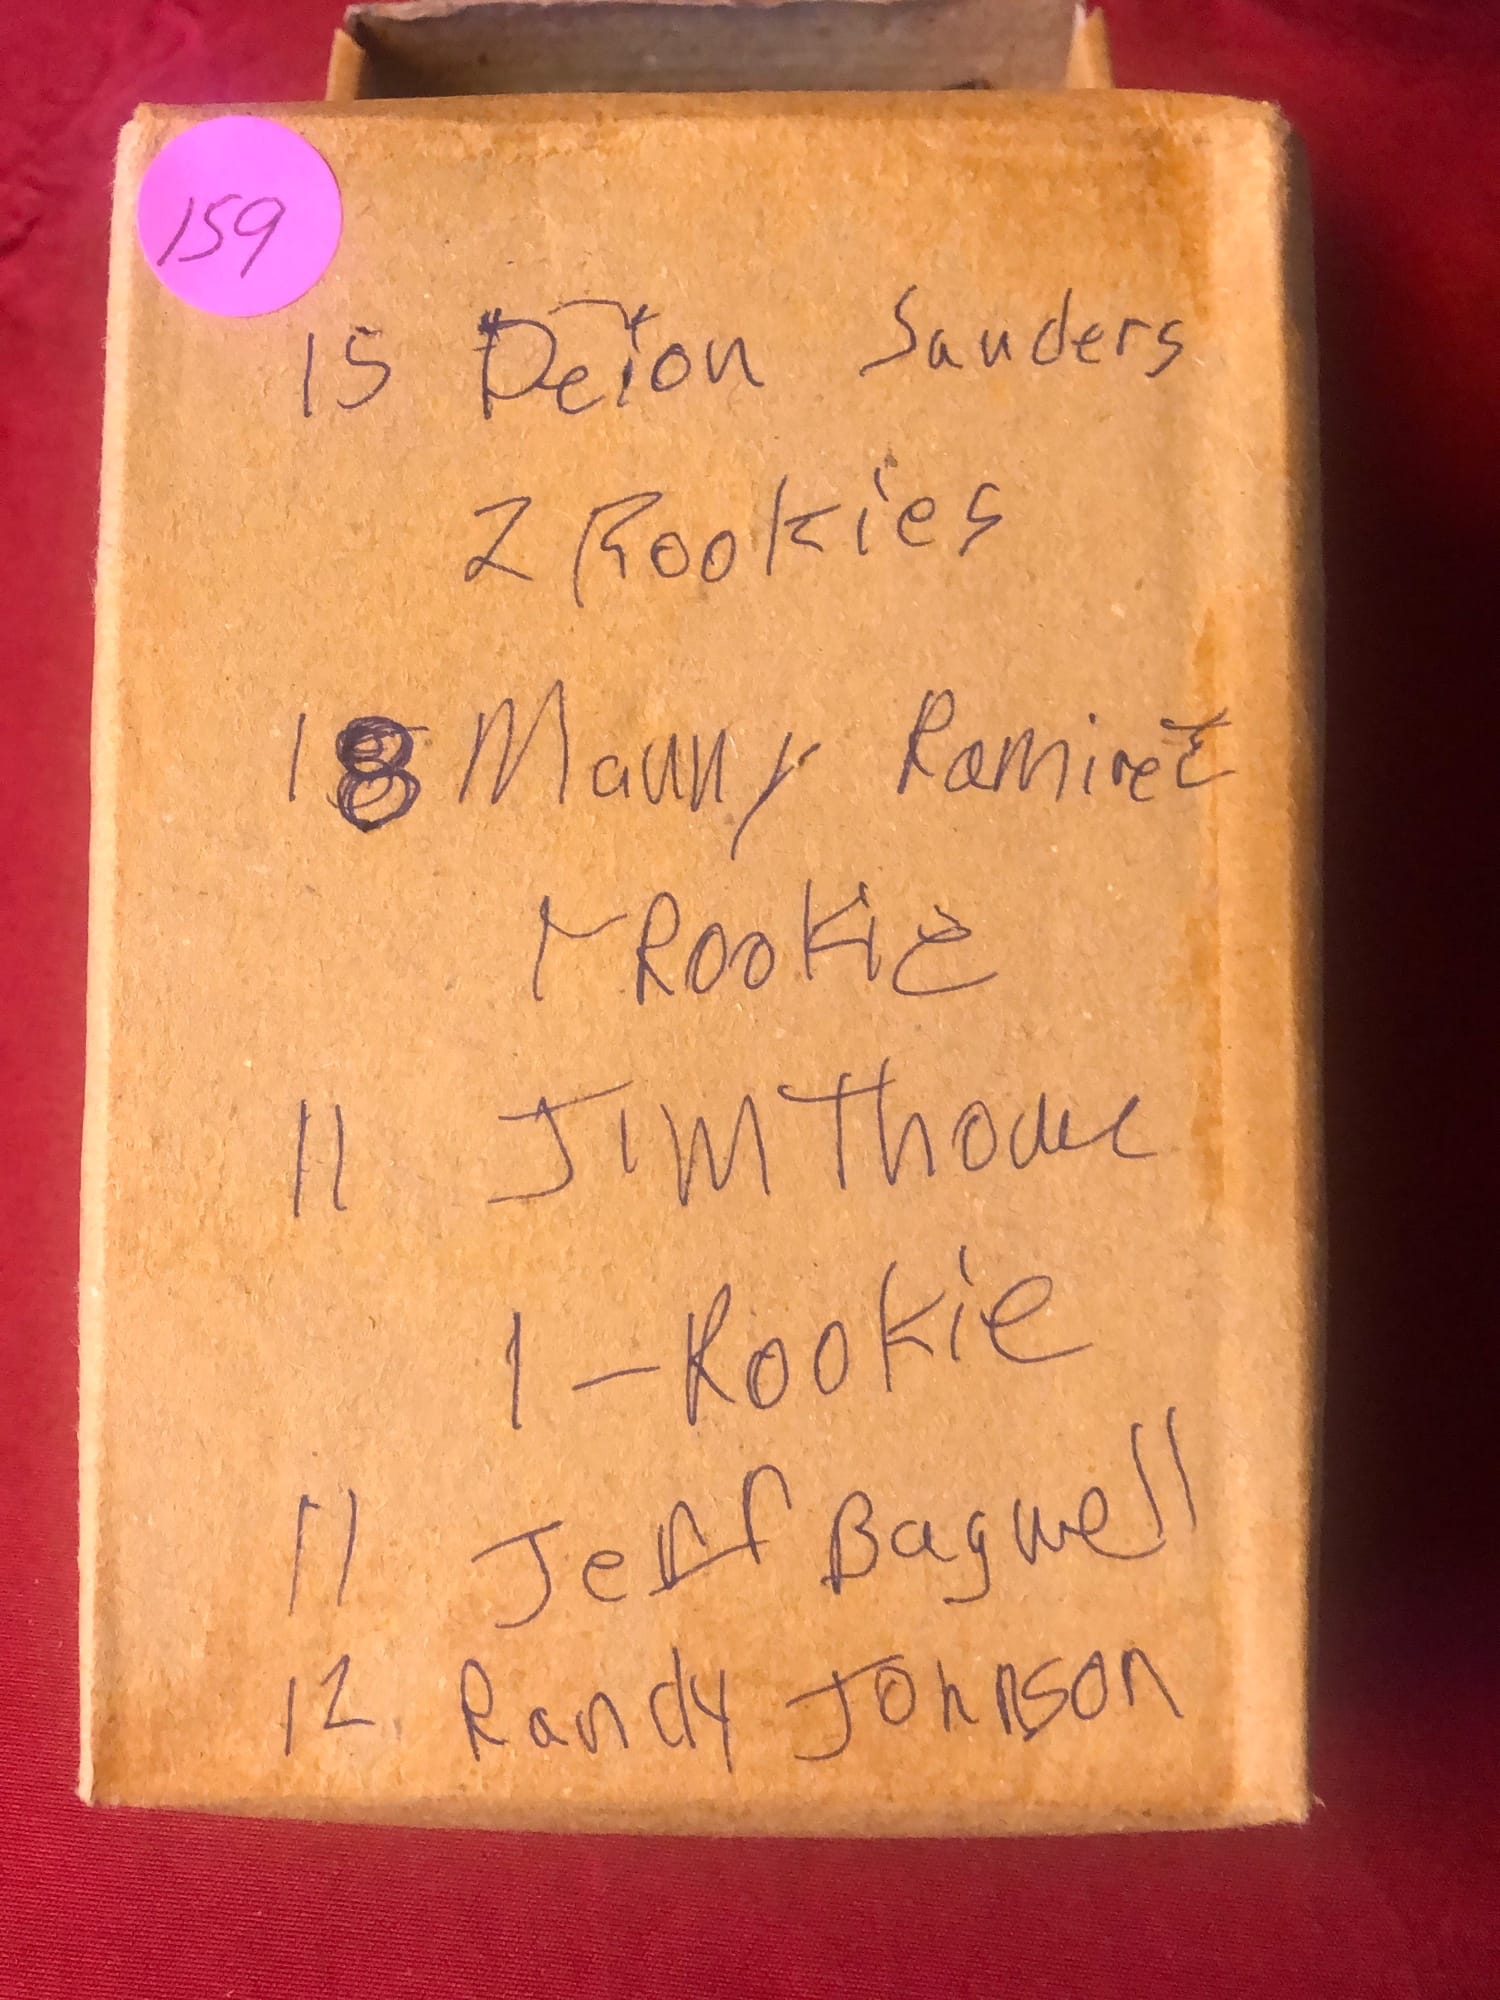 159
15 Deion Sanders
2 Rookies
18 Manny Ramirez
1-Rookie
11 Jim Thome
1-Rookie
11 Jeff Bagwell
12 Randy Johnson